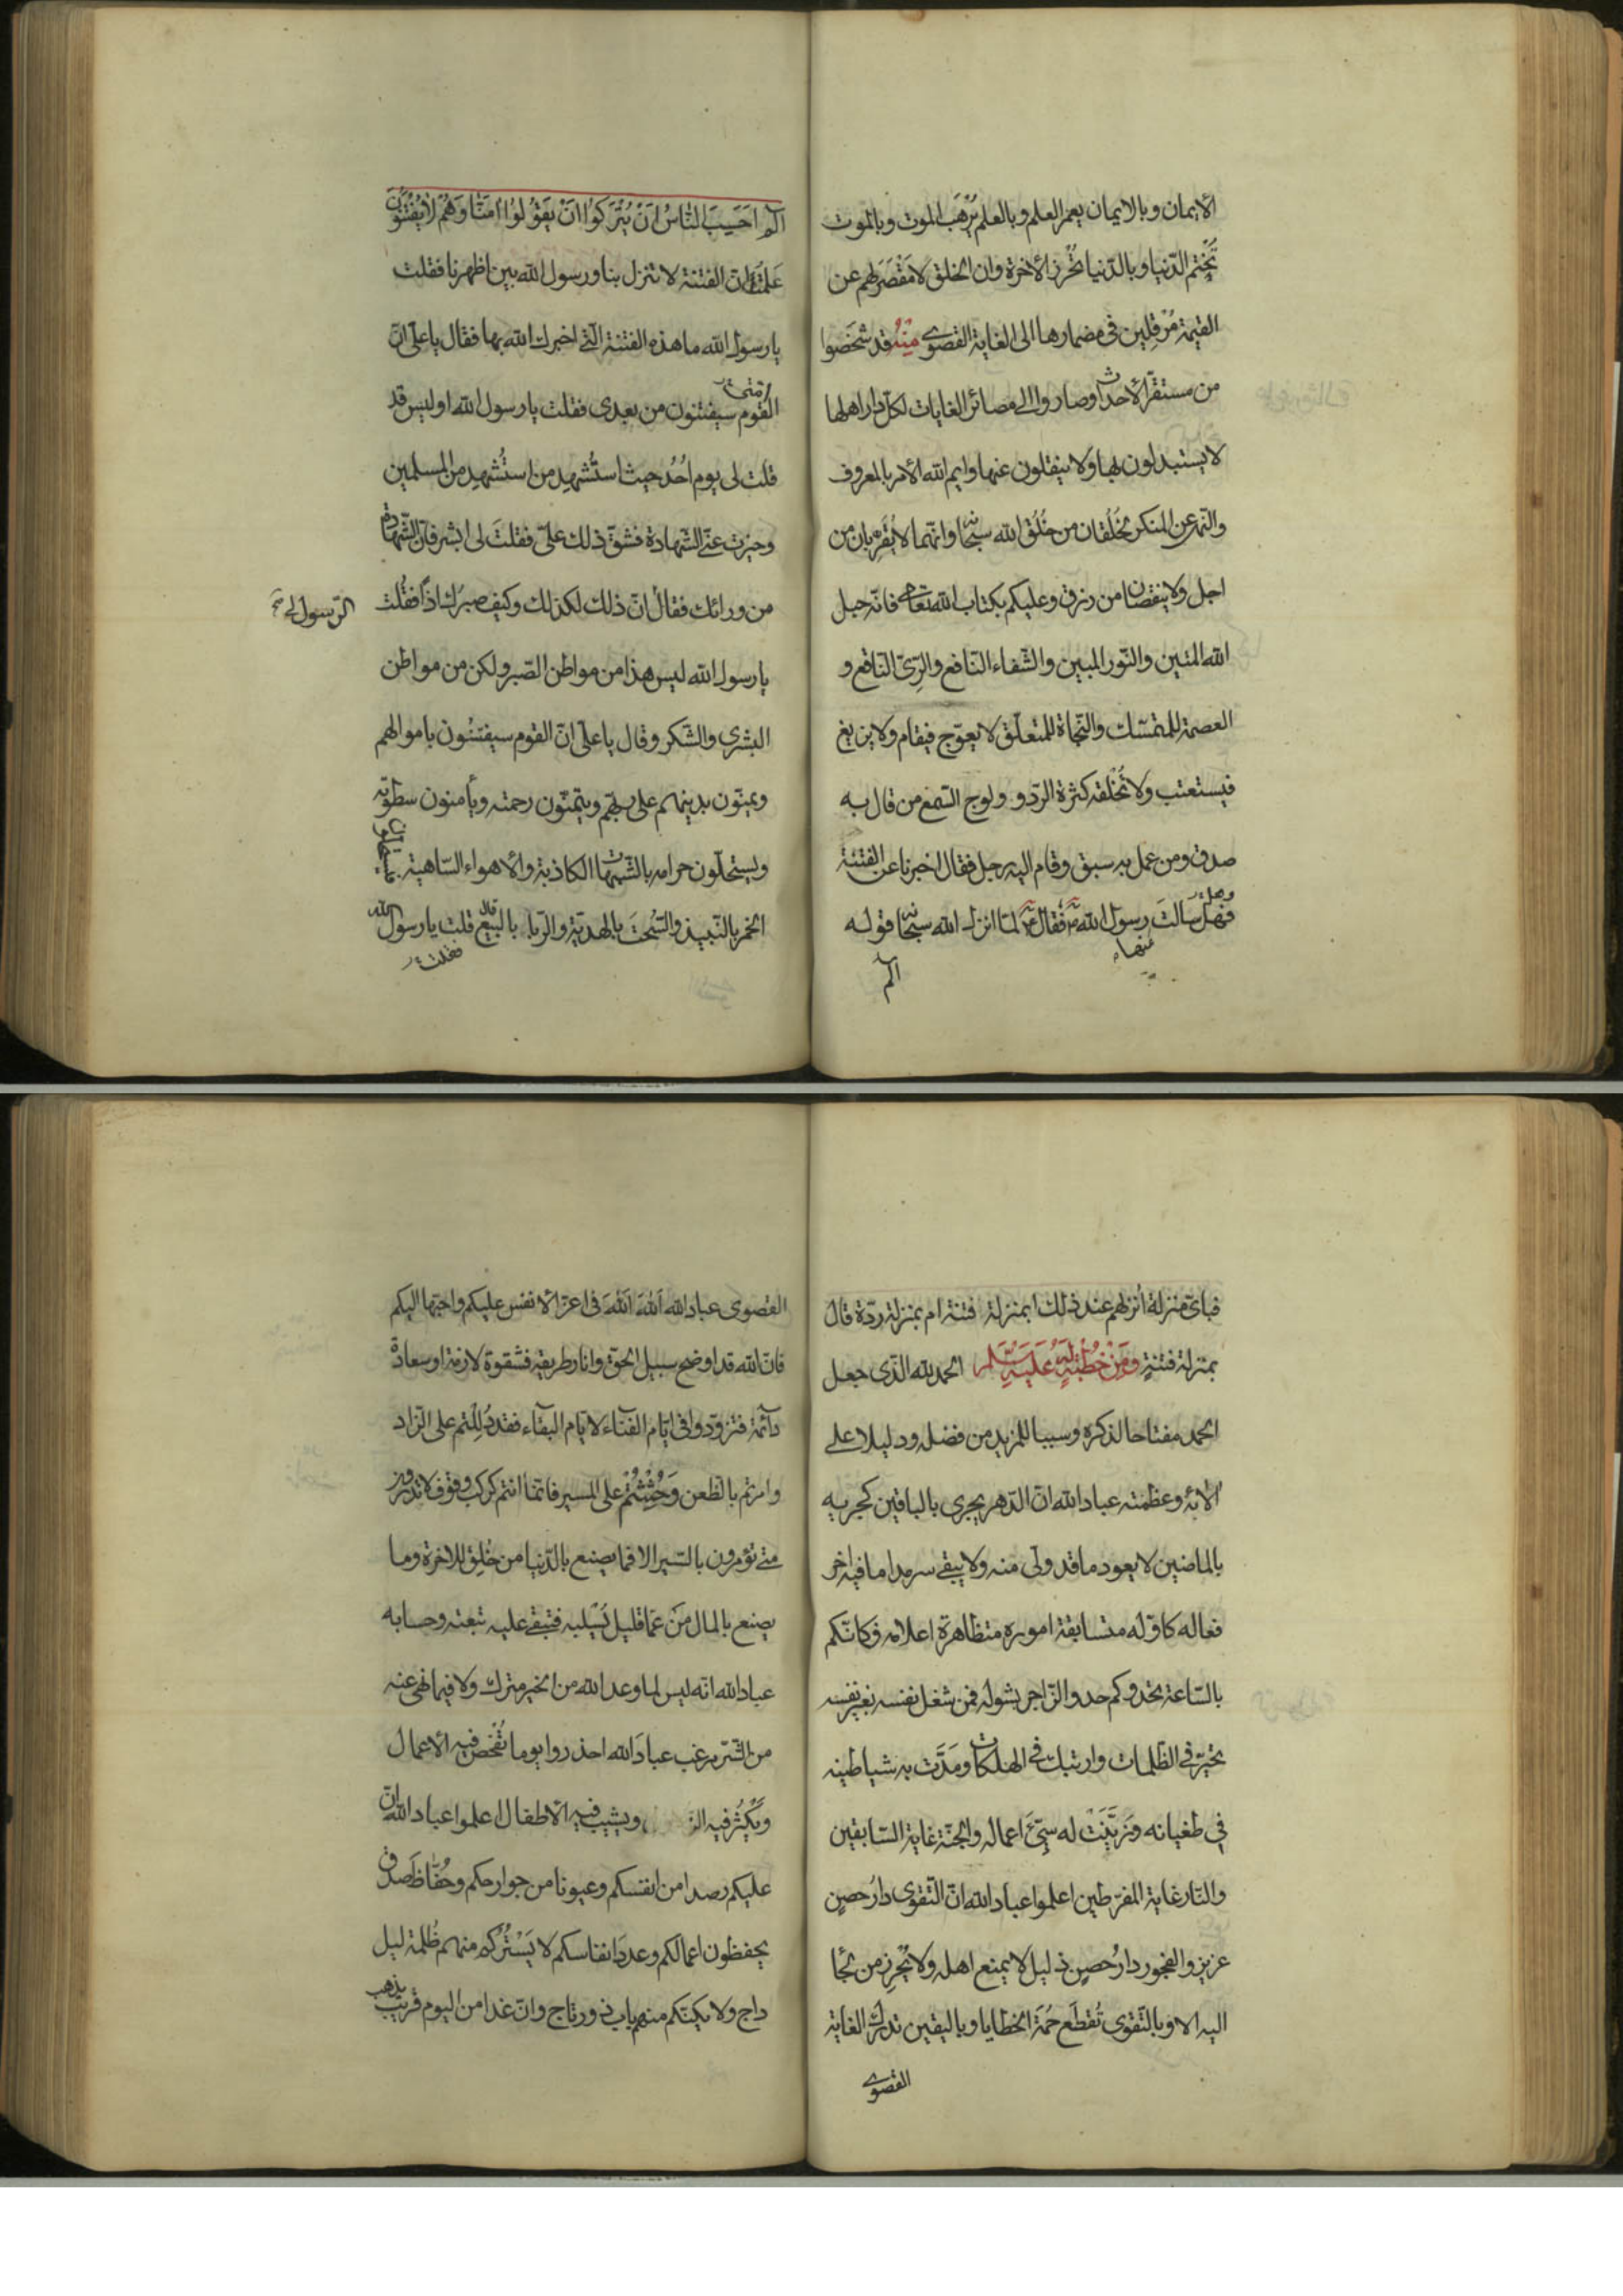 الايمان وبالايمان يعمر العلم وبالعلم يُرْهَبُ الموت وبالموت
تُخْتم الدّنيا وبالدّنيا تُحْرز الاخرة وان الخلق لا مَقْصَرَ لهم عن
القيمة مُرْقِلين فى مضمارها الى الغاية القصوى مِنْهُ قد شَخَصوا
من مستقرّ الاحداث وصاروا الى مصائر الغايات لكلّ دار اهلها
لا يستبدلون بها ولا ينقلون عنها وايم الله الامر بالمعروف
والنّهى عن المنكر لخُلُقان من خُلُق الله سبحانه وانّهما لا يُقَرّبان من
اجل ولا ينقصان من رزق وعليكم بكتاب الله تعالى فانّه حبل
الله المتين والنّور المبين والشّفاء النّافع والرِىّ النّاقع و
العصمة للمتمسّك والنّجاة للمتعلّق لا يعوّج فيقام ولا يزيغ
فيستعتب ولا تُخْلقه كثرة الرّد و ولوج السّمع من قال به
صدق ومن عمل به سبق وقام اليه رجل فقال اخبرنا عن الفتنة
وهل
فهل سَالتَ رسول الله ص فقال ع لمّا انزل الله سبحانه قوله
عنها
الم
الم اَحَسِبَ النّاسُ اَنْ يُتْرَكُوا اَنْ يَقُولُوا اٰمَنّا وَهُمْ لا يُفْتَنُونَ
عَلِمْتُ انّ الفتنة لا تنزل بنا ورسول الله بين اظهرنا فقلت
يا رسول الله ما هذه الفتنة الّتى اخبرك الله بها فقال يا علىّ انّ
اُمّتى
القوم سيفتنون من بعدى فقلت يا رسول الله اوليس قد
قلت لى يوم اُحُد حيث استُشهِد من استُشهِد من المسلمين
وحيزت عنّى الشّهادة فشقّ ذلك علىّ فقلتَ لى ابشر فانّ الشّهادة
من ورائك فقال انّ ذلك لكذلك وكيف صبرك اذاً فقُلت
الرّسول لى
يا رسول الله ليس هذا من مواطن الصّبر ولكن من مواطن
البشرى والشّكر وقال يا علىّ انّ القوم سيفتنون باموالهم
ويمنّون بدينهم على ربّهم ويتمنّون رحمته ويأمنون سطوته
ويستحلّون حرامه بالشّبهات الكاذبة والاهواء السّاهية فيستحلّون
الخمر بالنّبيذ والسُّحتَ بالهديّة والرّبا بالبيع قال قلت يا رسول الله
فقلت
فبأىّ منزلة اُنزلهم عند ذلك ابمنزلة فتنة ام بمنزلة ردّة قال
بمنزلة فتنةٍ وَمِنْ خُطْبَةٍ لَهُ عَلَيْهِ السَّلَم الحمد لله الّذى جعل
الحمد مفتاحا لذكره وسببا للمزيد من فضله ودليلا على
الائه وعظمته عباد الله انّ الدّهر يجرى بالباقين كجريه
بالماضين لا يعود ما قد ولّى منه ولا يبقى سرمدا ما فيه اخر
فعاله كاوّله متسابقة اموره متظاهرة اعلامه فكانّكم
بالسّاعة تحدوكم حدو الزّاجر بشوله فمن شغل نفسه بغير نفسه
تحيّر فى الظلمات وارتبك فى الهلكات ومَدَّت به شياطينه
فى طغيانه وَزيَّنَت له سيّئ اعماله والجنّة غاية السّابقين
والنّار غاية المفرّطين اعلموا عباد الله انّ التّقوى دارُ حصنٍ
عزيز والفجور دارُ حصنٍ ذليل لا يمنع اهله ولا يُحْرِز من لجأ
اليه الا وبالتّقوى تُقطَع حُمَة الخطايا وباليقين تدرك الغاية
القصوى
القصوى عباد الله اَللهَ اَللهَ فى اعزّ الانفس عليكم واحبّها اليكم
فانّ الله قد اوضح سبيل الحقّ وانار طريقه فشقوة لازمة او سعادة
دائمة فتزوّدوا فى ايّام الفناء لايّام البقاء فقد دُلِلتم على الزّاد
وامرتم بالظّعن وَحُثِثْتُمْ على المسير فانّما انتم كركب وقوف لا تدرون
متى تؤمرون بالسّير الا فما يصنع بالدّنيا من خُلِق للاخرة وما
يصنع بالمال مَن عمّا قليل يُسْلبه فتبقى عليه تبعته وحسابه
عباد الله انّه ليس لما وعد الله من الخير مترك ولا فيما نهى عنه
من الشّر مرغب عبادَ الله احذروا يوما تُفْحَص فيه الاعمال
ويَكْثُر فيه الز ويشيب فيه الاطفال اعلموا عباد الله انّ
عليكم رصدا من انفسكم وعيونا من جوارحكم وحُفّاظَ صدق
يحفظون اعمالكم وعددَ انفاسكم لا يَسْتُركم منهم ظُلمة ليل
داج ولا يكنّكم منهم باب ذو رتاج وانّ غدا من اليوم قريب يذهب